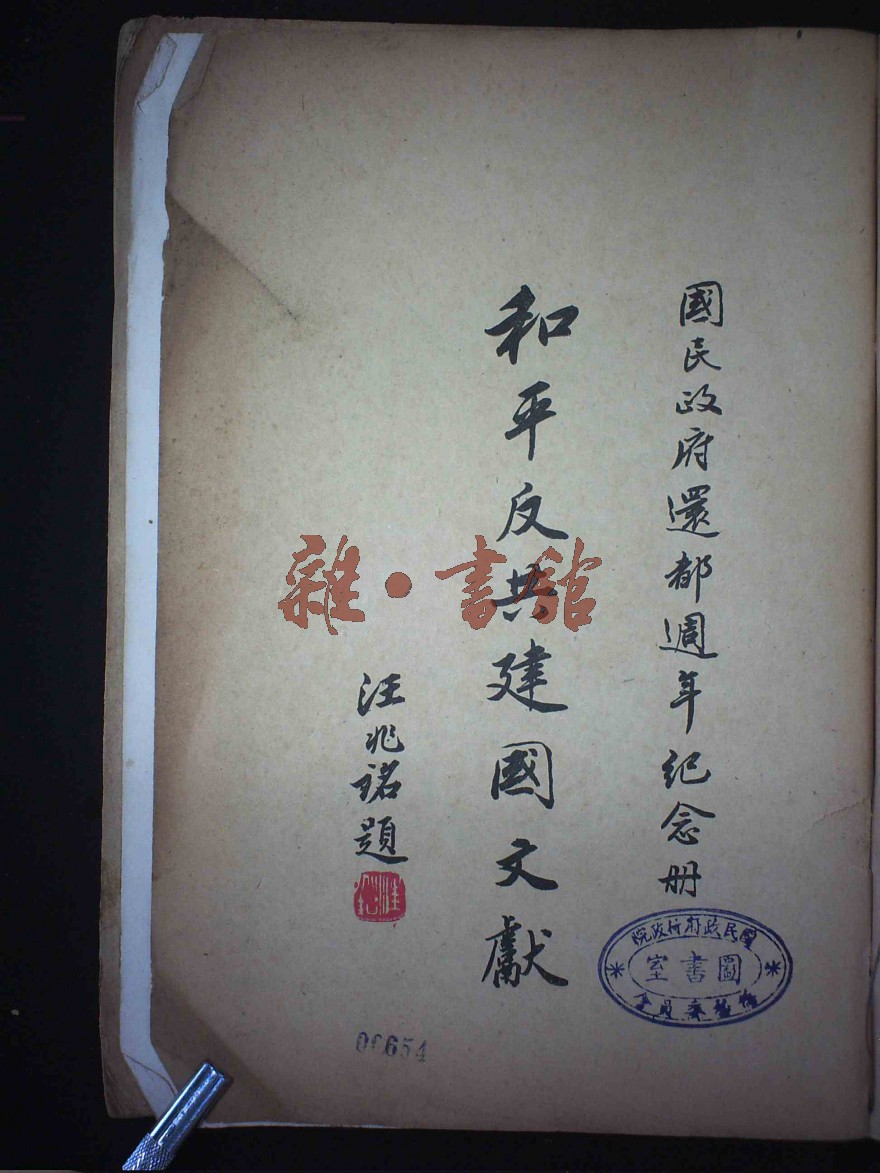 國民政府還都週年紀念册
和平反共建國文獻
汪兆銘題
雜·書館
國民政府行政院
圖書室
委員會
00654